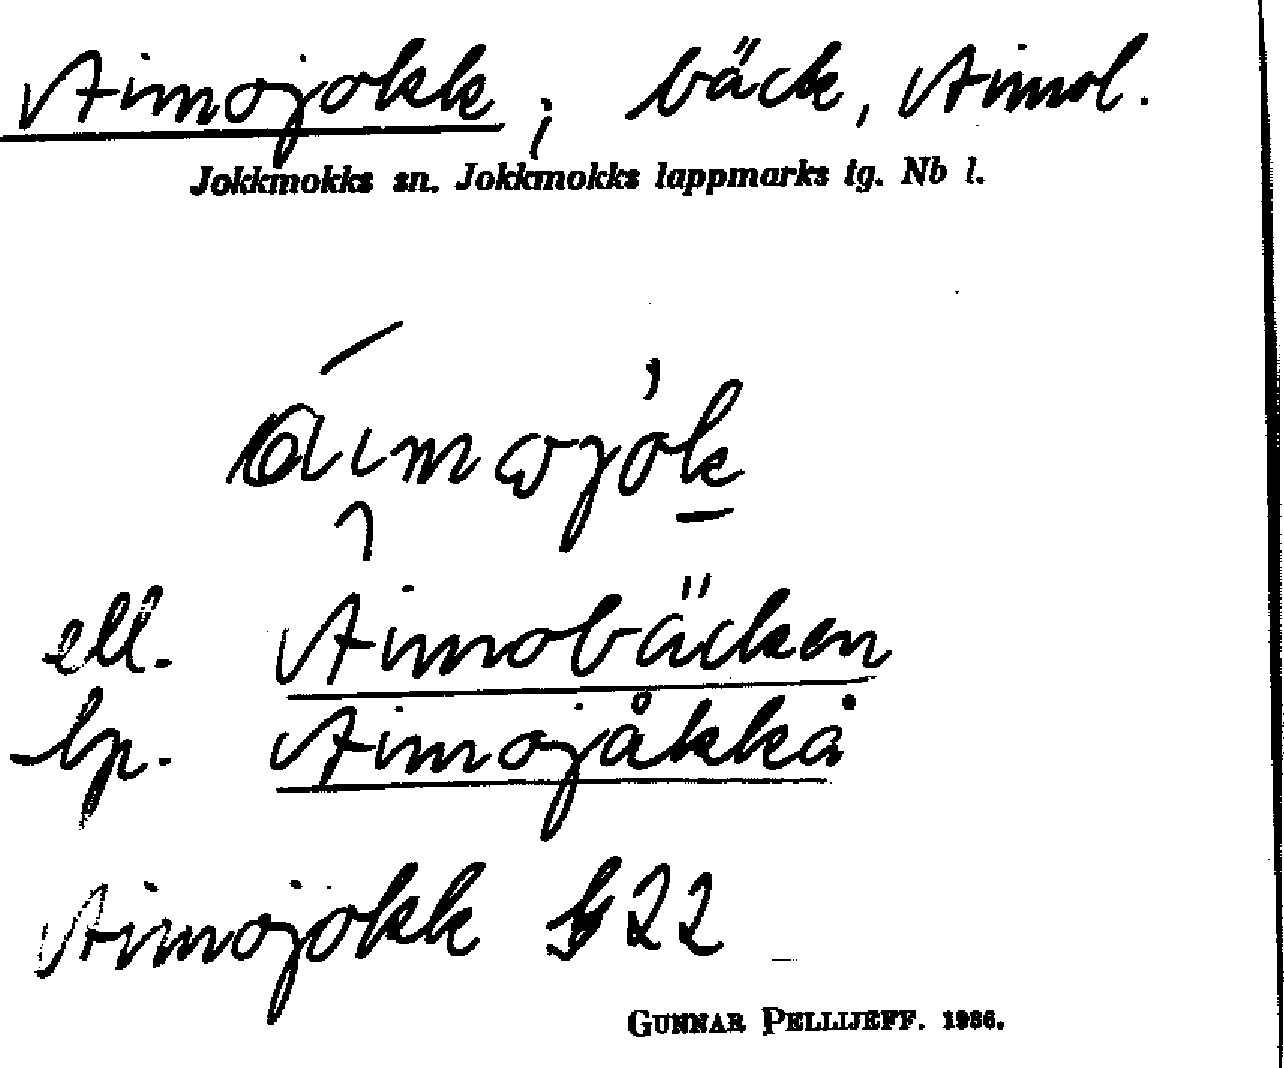 Aimojokk; bäck, Aimol.
Jokkmokks sn. Jokkmokks lappmarks tg. Nb l.
ell. Aimobäcken
lp. Aimojåkkå
Aimojokk 22
GUNNAR PELLIJEFF. 1936.